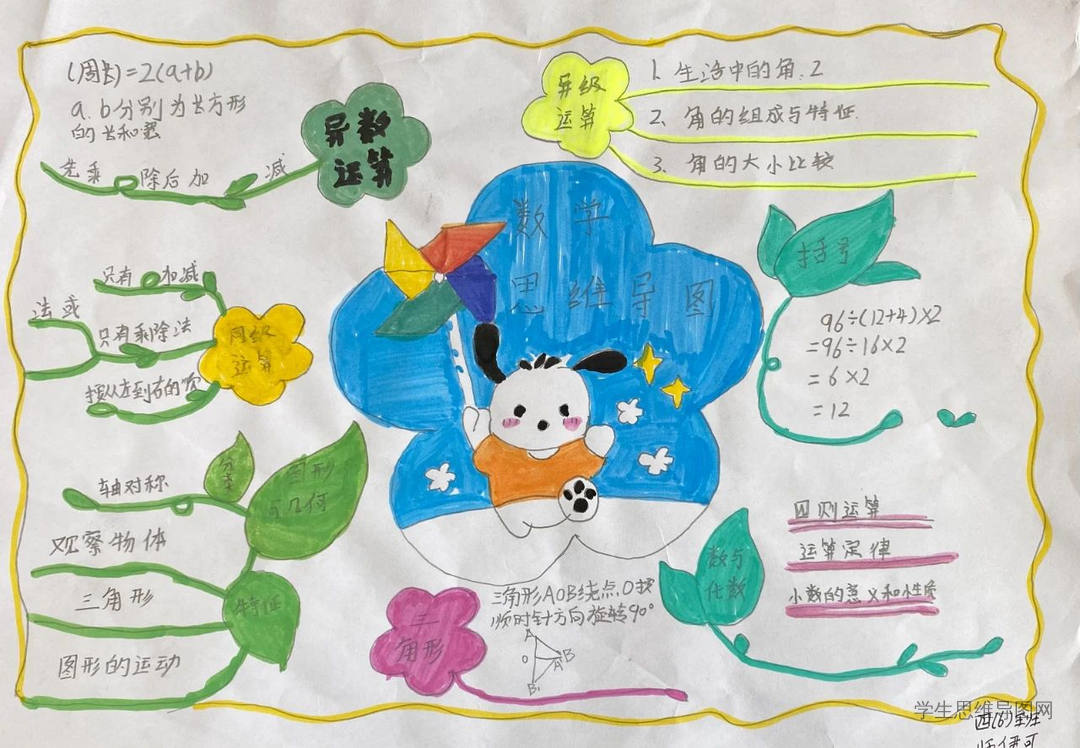 (周长)=2(a+b)
a.b分别为长方形
的长和宽
先乘 除后加 减
异数
运算
异级
运算
1. 生活中的角.2
2. 角的组成与特征.
3. 角的大小比较
数学
思维导图
括号
96÷(12+4)×2
=96÷16×2
=6×2
=12
只有 加减
法或
只有乘除法
按从左到右的
同级
运算
分类
图形
与几何
轴对称
观察物体
三角形
特征
图形的运动
三
角形
三角形AOB绕点O按
顺时针方向旋转90°
A
O
B
A'
B'
数与
代数
四则运算
运算定律
小数的意义和性质
学生思维导图网
四(6)班